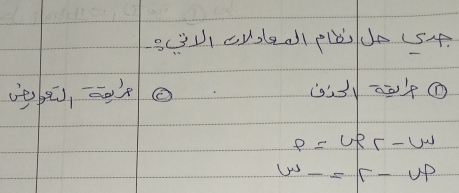 جدي حل نظام المعادلات الاتي :-
① طريقة الحذف ② طريقة التعويض
س - ٢ص = ٥
ص - ٢ = - س